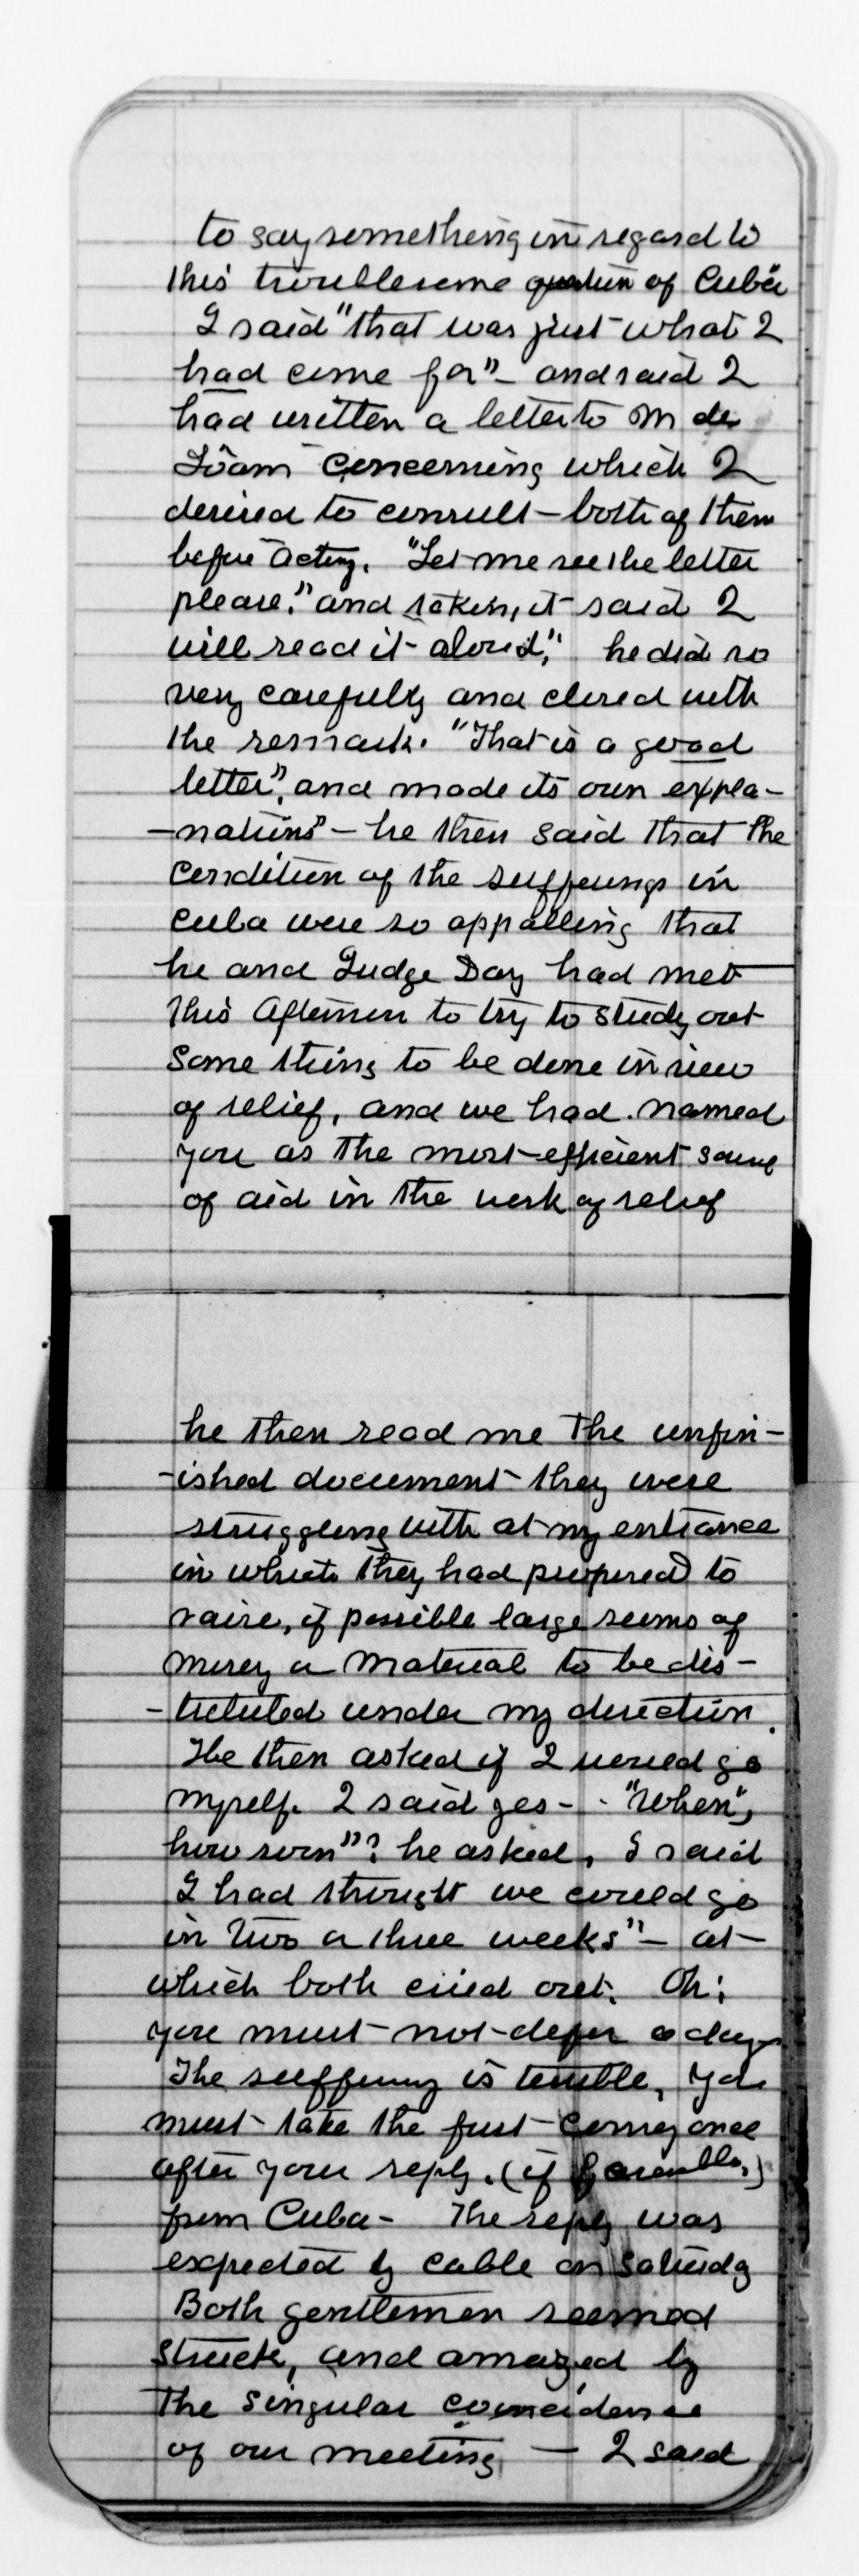 to say something in regard to
this troublesome question of Cuba
I said "that was just what I
had come for" - and said I
had written a letter to M de
Lôam concerning which I
desired to consult - both of them
before acting. "Let me see the letter
please." and taking it said I
will read it aloud," he did so
very carefully and closed with
the remark. "That is a good
letter", and made its own expla-
-nations" - he then said that the
condition of the sufferings in
Cuba were so appalling that
he and Judge Day had met
this afternoon to try to study out
some thing to be done in view
of relief, and we had named
you as the most efficient source
of aid in the work of relief
he then read me the unfin-
-ished document they were
struggling with at my entrance
in which they had proposed to
raise, if possible large sums of
money or material to be dis-
-tributed under my direction.
He then asked if I would go
myself. I said yes - - "When",
how soon"? he asked, I said
I had thought we could go
in two or three weeks" - at
which both cried out. Oh!
you must not defer a day
The suffering is terrible, you
must take the first conveyance
after your reply. (if favorable,)
from Cuba - The reply was
expected by cable on Saturday
Both gentlemen seemed
struck, and amazed by
the singular coincidence
of our meeting - I said